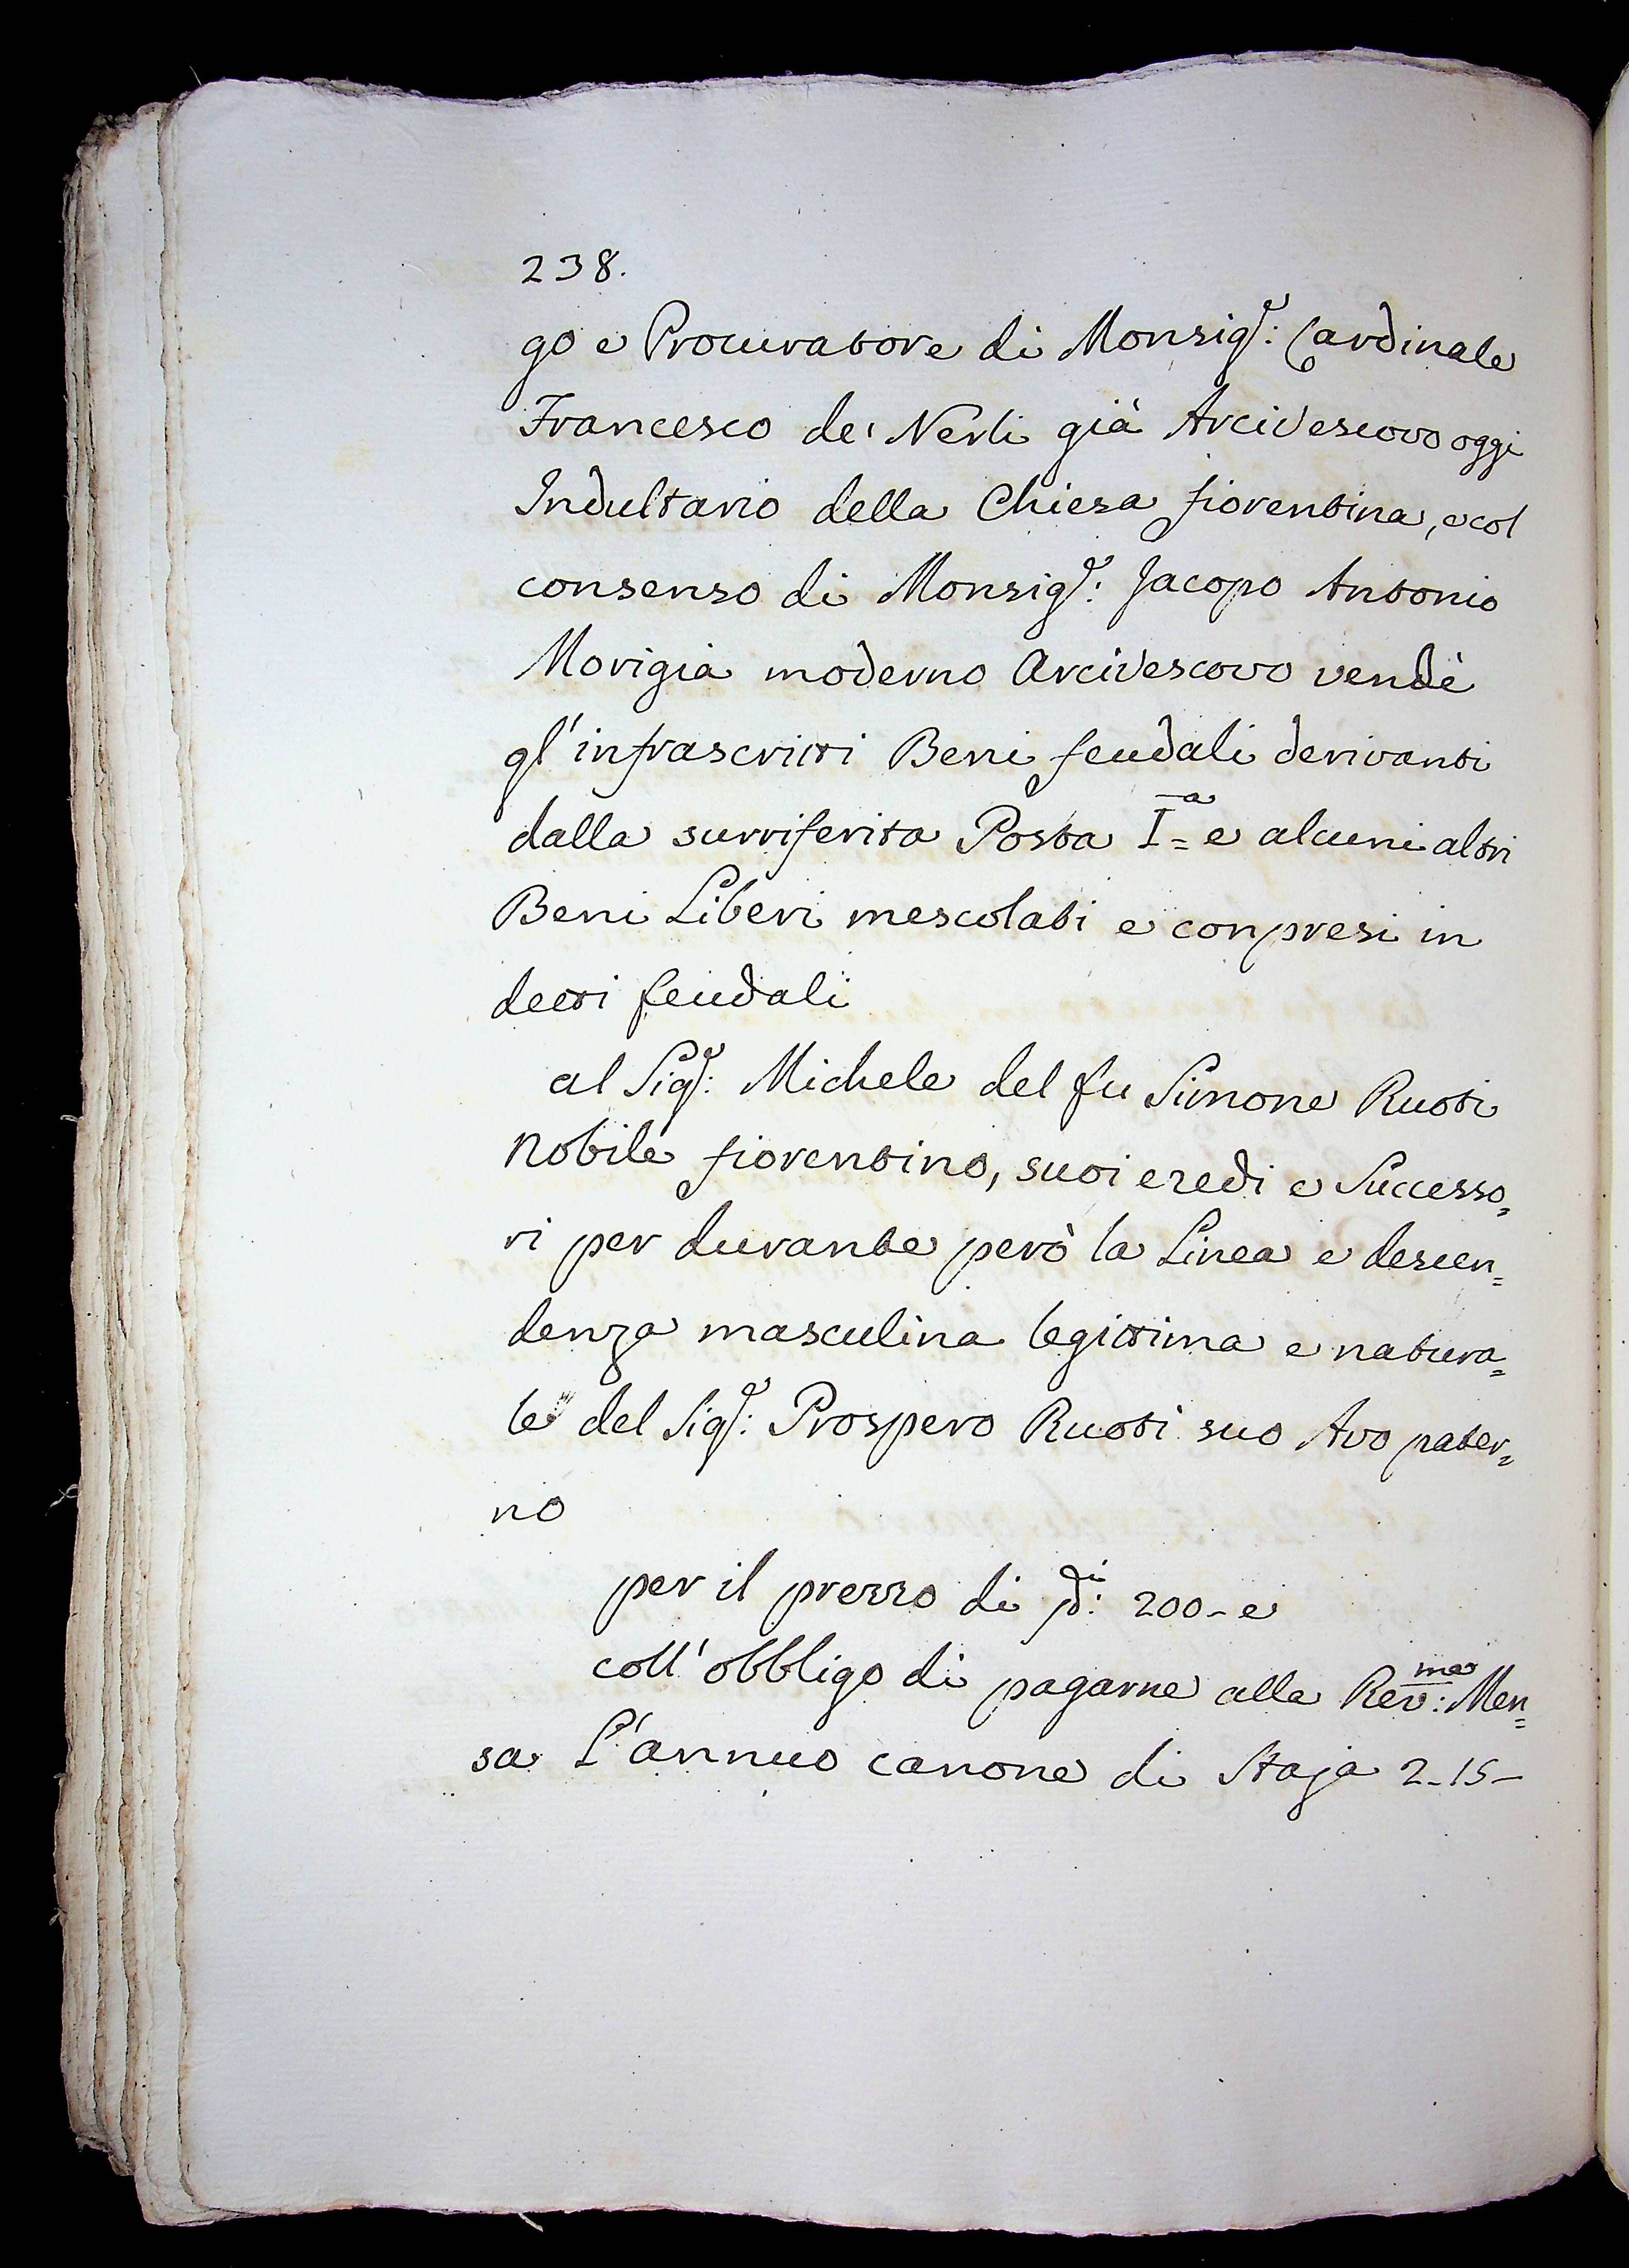 238.
go e Procuratore di Monsig.^e: Cardinale
Francesco de' Nerli già Arcivescovo oggi
Indultario della Chiesa fiorentina, e col
consenso di Monsig.^e: Jacopo Antonio
Morigia moderno Arcivescovo vendè
gl'infrascritti Beni feudali derivanti
dalla surriferita Posta I=^a e alcuni altri
Beni Liberi mescolati e conpresi in
detti feudali
al Sig.^e: Michele del fu Simone Ruoti
Nobile fiorentino, suoi eredi e Successo=
ri per durante però la Linea e descen=
denza masculina legittima e natura=
le del Sig.^e: Prospero Ruoti suo Avo pater=
no
per il prezzo di 200 - e
coll'obbligo di pagarne alla Rev:^ma Men=
sa L'annuo canone di Staja 2-15-